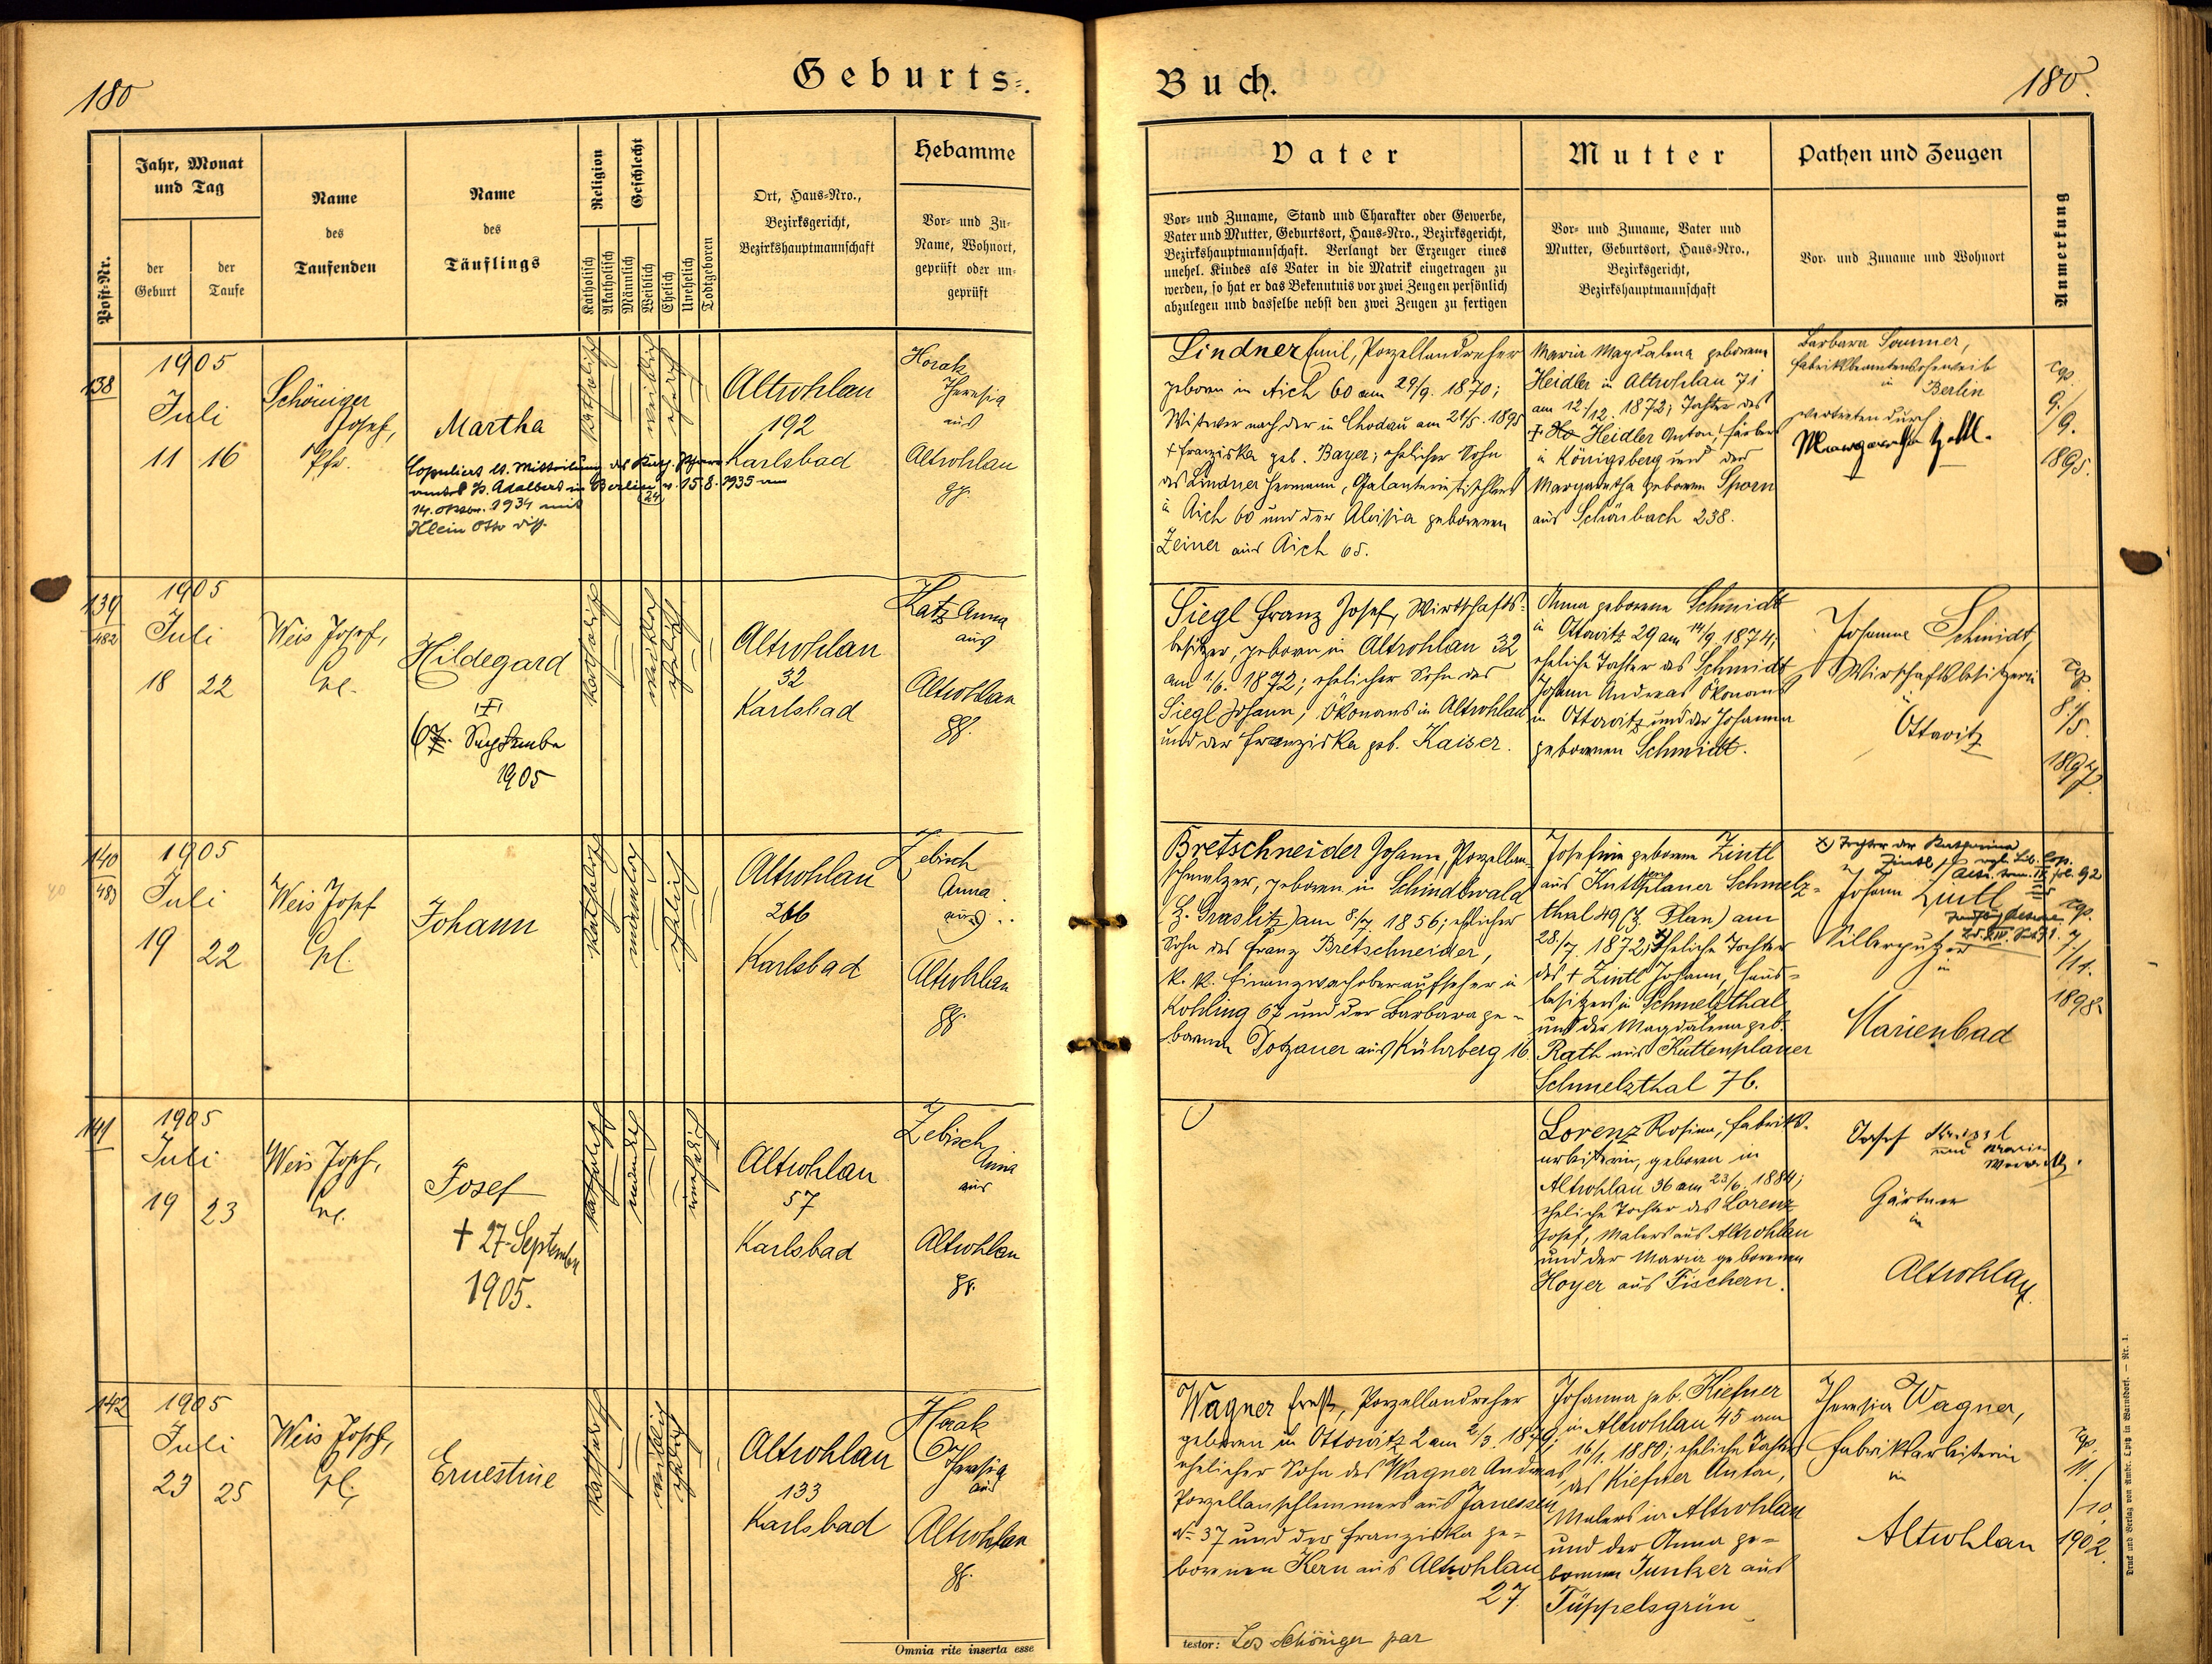 180
Geburts-
Buch.
180.
Post-Nr.
Jahr, Monat
und Tag
der
Geburt
der
Taufe
Name
des
Taufenden
Name
des
Täuflings
Religion
Katholisch
Akatholisch
Geschlecht
Männlich
Weiblich
Ehelich
Unehelich
Todtgeboren
Ort, Haus-Nro.,
Bezirksgericht,
Bezirkshauptmannschaft
Hebamme
Vor- und Zu-
Name, Wohnort,
geprüft oder un-
geprüft
Vater
Vor- und Zuname, Stand und Charakter oder Gewerbe,
Vater und Mutter, Geburtsort, Haus-Nro., Bezirksgericht,
Bezirkshauptmannschaft. Verlangt der Erzeuger eines
unehel. Kindes als Vater in die Matrik eingetragen zu
werden, so hat er das Bekenntnis vor zwei Zeugen persönlich
abzulegen und dasselbe nebst den zwei Zeugen zu fertigen
Mutter
Vor- und Zuname, Vater und
Mutter, Geburtsort, Haus-Nro.,
Bezirksgericht,
Bezirkshauptmannschaft
Pathen und Zeugen
Vor- und Zuname und Wohnort
Anmerkung
138
1905
Juli
11 16
Schöniger
Josef,
Pfr.
Martha
14. 1934 mit
Klein Otto
katholisch
weiblich
ehelich
Altrohlau
192
Karlsbad
Horak
Theresia
aus
Altrohlau
gp.
Lindner Emil, Porzellandreher
geboren in Aich 60 am 29/9. 1870;
Witwer nach der in Chodau am 21/5. 1895
† Franziska geb. Bayer; ehelicher Sohn
des Lindner Hermann, Galanterietischlers
in Aich 60 und der Aloisia geborenen
Zeiner aus Aich 65.
Maria Magdalena geborene
Heidler in Altrohlau 71
am 12/12. 1872; Tochter des
† Heidler Anton, Färbers
in Königsberg und der
Margaretha geborenen Sporn
aus Schönbach 238.
Barbara Sommer,
in Berlin
vertreten durch
cop.
9./
/9.
1895.
139
482
1905
Juli
18 22
Weis Josef,
Hildegard
†
September
1905
katholisch
weiblich
ehelich
Altrohlau
32
Karlsbad
Katz Anna
aus
Altrohlau
gp.
Siegl Franz Josef, Wirtschafts-
besitzer, geboren in Altrohlau 32
am 1/6. 1872; ehelicher Sohn des
Siegl Johann, Ökonoms in Altrohlau
und der Franziska geb. Kaiser.
Anna geborene Schmidt
in Ottowitz 29 am 14/9. 1874;
eheliche Tochter des Schmidt
Johann Andreas Ökonoms
in Ottowitz und der Johanna
geborenen Schmidt.
Johanna Schmidt,
Wirschaftsbesitzerin
in
Ottowitz
cop.
8./
/5.
1897.
140
483
1905
Juli
19 22
Weis Josef
Johann
katholisch
männlich
ehelich
Altrohlau
266
Karlsbad
Zebisch
Anna
aus
Altrohlau
gp.
Bretschneider Johann, Porzellan-
schmelzer, geboren in Schindlwald
(Bz. Graslitz) am 8./7. 1856; ehelicher
Sohn des Franz Bretschneider,
k. k. Finanzwachoberaufseher in
Kohling 67 und der Barbara ge-
borenen Dotzauer aus Kührberg 16.
Josefine geborene Zintl
aus Kuttenplaner Schmelz-
thal 49 (Bz. Plan) am
28./7. 1872; x) eheliche Tochter
des † Zintl Johann, Haus-
besitzers in Schmelzthal
und der Magdalena geb.
Rath aus Kuttenplaner
Schmelzthal 76.
x) Tochter der Katharina
Zintl
Johann Zintl
in
Marienbad
cop.
7./
/11.
1898
141
1905
Juli
19 23
Weis Josef,
Josef
† 27. September
1905.
katholisch
männlich
unehelich
Altrohlau
57
Karlsbad
Zebisch
Anna
aus
Altrohlau
gp.
Lorenz Rosina, Fabriks-
arbeiterin, geboren in
Altrohlau 36 am 23/6. 1884;
eheliche Tochter des Lorenz
Josef, Malers aus Altrohlau
und der Maria geborenen
Hoyer aus Fischern.
Josef
Gärtner
in
Altrohlau
142
1905
Juli
23 25
Weis Josef,
Ernestine
katholisch
weiblich
ehelich
Altrohlau
133
Karlsbad
Horak
Theresia
aus
Altrohlau
gp.
Wagner Ernst, Porzellandreher
geboren in Ottowitz 2 am 2/3. 1879;
ehelicher Sohn des Wagner Andreas,
Porzellanschlemmers aus Janessen
No 37 und der Franziska ge-
borenen Kern aus Altrohlau
27.
Johanna geb. Kiefner
in Altrohlau 45 am
16/1. 1880; eheliche Tochter
des Kiefner Anton,
Malers in Altrohlau
und der Anna ge-
borenen Junker aus
Tüppelsgrün
Theresia Wagner,
Fabriksarbeiterin
in
Altrohlau
cop.
11./
/10.
1902.
Omnia rite inserta esse
testor: Jos Schöniger par
Druck und Verlag von Ambr. Opitz in Warnsdorf. — Nr. 1.